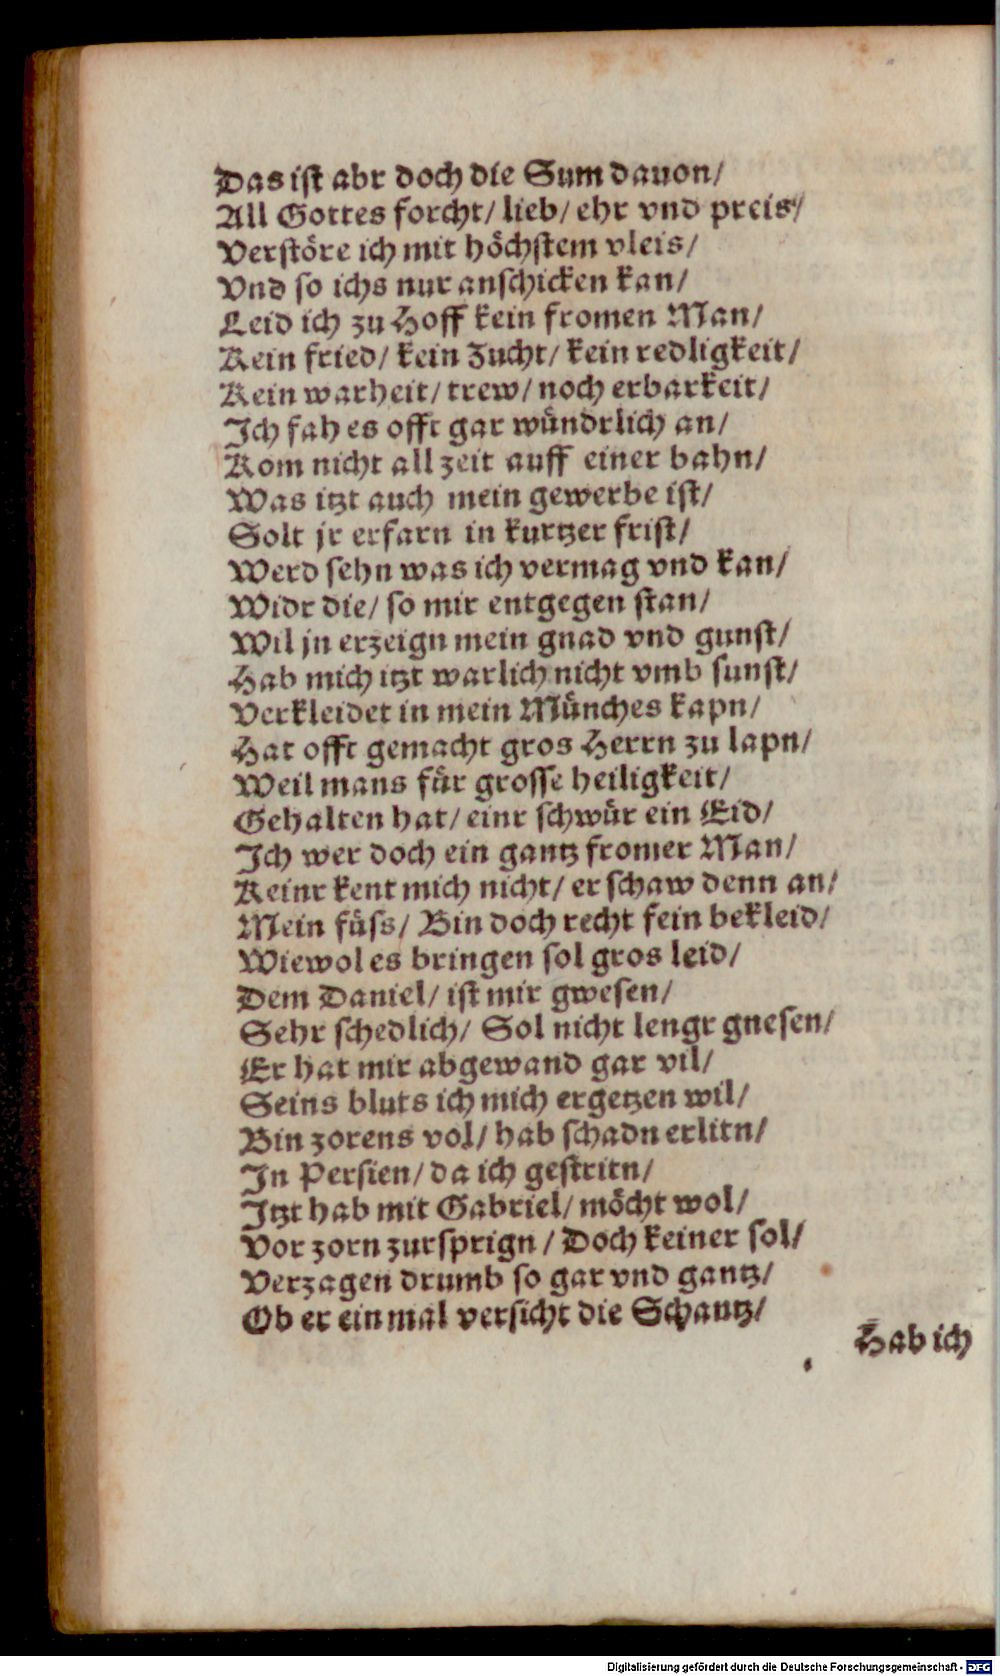 Das ist abr doch die Sum dauon/
All Gottes forcht/ lieb/ ehr vnd preis/
Verstöre ich mit höchstem vleis/
Vnd so ichs nur anschicken kan/
Leid ich zu Hoff kein fromen Man/
Kein fried/ kein Zucht/ kein redligkeit/
Kein warheit/ trew/ noch erbarkeit/
Ich fah es offt gar wündrlich an/
Kom nicht all zeit auff einer bahn/
Was itzt auch mein gewerbe ist/
Solt jr erfarn in kurtzer frist/
Werd sehn was ich vermag vnd kan/
Widr die/ so mir entgegen stan/
Wil jn erzeign mein gnad vnd gunst/
Hab mich itzt warlich nicht vmb sunst/
Verkleidet in mein Münches kapn/
Hat offt gemacht gros Herrn zu lapn/
Weil mans für grosse heiligkeit/
Gehalten hat/ einr schwür ein Eid/
Ich wer doch ein gantz fromer Man/
Keinr kent mich nicht/ er schaw denn an/
Mein füss/ Bin doch recht fein bekleid/
Wiewol es bringen sol gros leid/
Dem Daniel/ ist mir gwesen/
Sehr schedlich/ Sol nicht lengr gnesen/
Er hat mir abgewand gar vil/
Seins bluts ich mich ergetzen wil/
Bin zorens vol/ hab schadn erlitn/
In Persien/ da ich gestritn/
Itzt hab mit Gabriel/ möcht wol/
Vor zorn zursprign/ Doch keiner sol/
Verzagen drumb so gar vnd gantz/
Ob er ein mal versicht die Schantz/
Hab ich
Digitalisierung gefördert durch die Deutsche Forschungsgemeinschaft - DFG